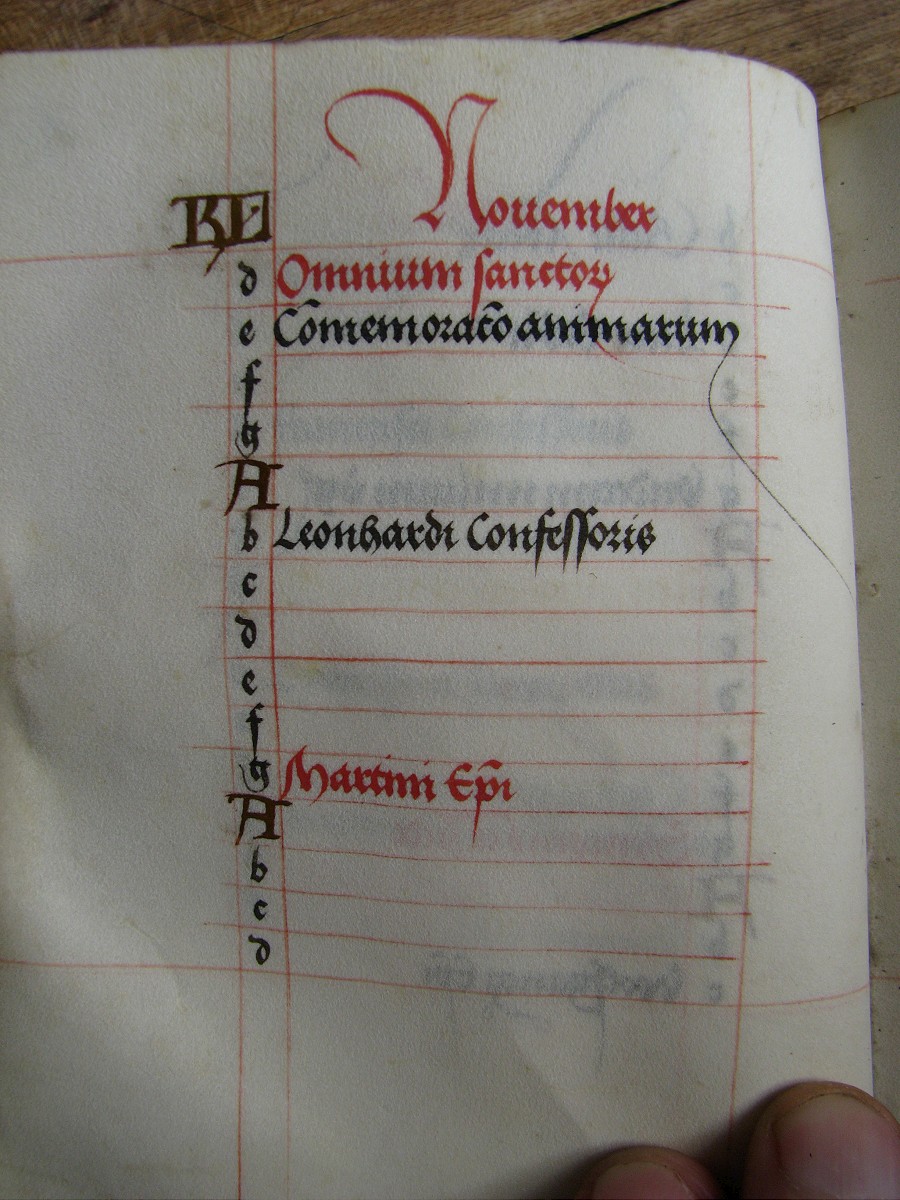 KL Nouember
d Omnium sanctoꝝ
e Com̄emorac̄o animarum
f
g
A
b Leonhardi Confessoris
c
d
e
f
g Martini Ep̄i
A
b
c
d